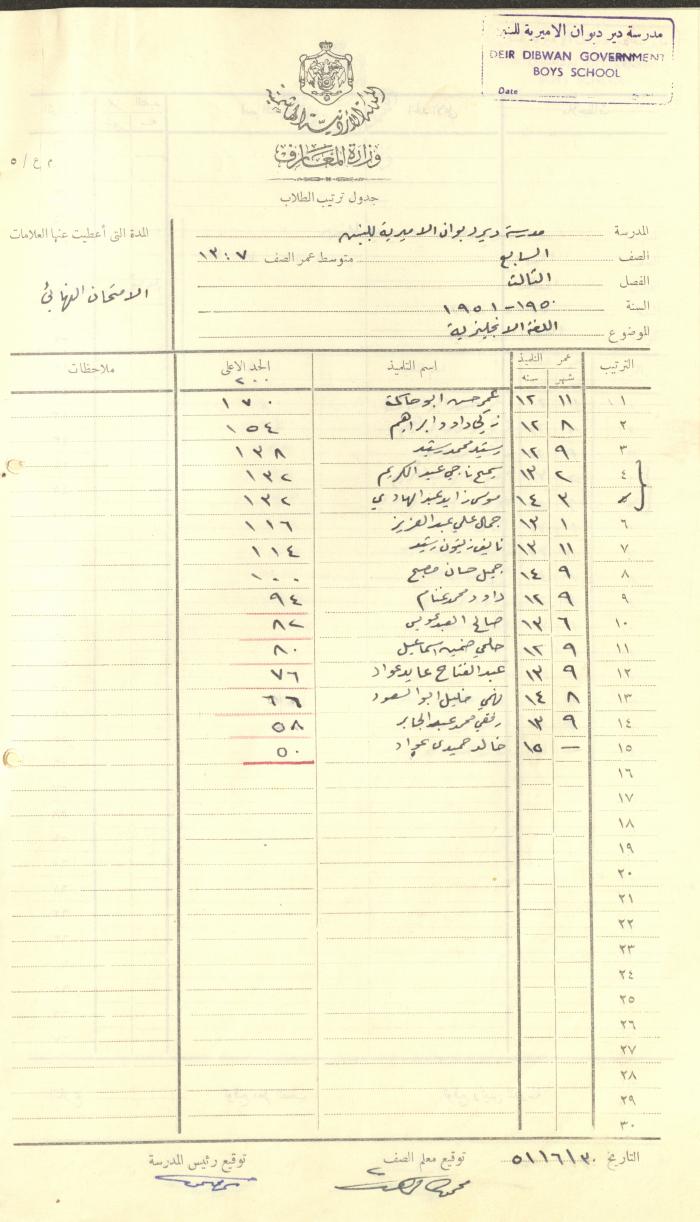 مدرسة دير دبوان الاميرية للبنين
DEIR DIBWAN GOVERNMENT
BOYS SCHOOL
Date
المملكة الأردنية الهاشمية
وزارة المعارف
م ع / ٥
جدول ترتيب الطلاب
المدرسة مدرسة ديردبوان الاميرية للبنين
المدة التي أعطيت عنها العلامات
الصف السابع متوسط عمر الصف ١٣:٧
الفصل الثالث
الامتحان النهائي
السنة ١٩٥٠-١٩٥١
الموضوع اللغة الانجليزية
الترتيب عمر التلميذ اسم التلميذ الحد الاعلى ملاحظات
شهر سنه ٢٠٠
١ ١١ ١٢ عمر حسن ابو حاكمة ١٧٠
٢ ٨ ١٢ زكي داود ابراهيم ١٥٤
٣ ٩ ١٢ رشيد محمد رشيد ١٣٨
٤ ٢ ١٣ سميح ناجي عبد الكريم ١٣٢
٣ ١٤ موسى زايد عبد الهادي ١٣٢
٦ ١ ١٣ جمال علي عبد العزيز ١١٦
٧ ١١ ١٣ نايف زيتون رشيد ١١٤
٨ ٩ ١٤ جميل حسان مصبح ١٠٠
٩ ٩ ١٢ داود محمد غنام ٩٤
١٠ ٦ ١٣ صالح العبد عويس ٨٢
١١ ٩ ١٢ حلمي اسماعيل ٨٠
١٢ ٩ ١٣ عبد الفتاح عايد عواد ٧٦
١٣ ٨ ١٤ خليل ابو السعود ٦٦
١٤ ٩ ١٣ رفقي محمد عبد الجابر ٥٨
١٥ — ١٥ خالد حميدي عواد ٥٠
١٦
١٧
١٨
١٩
٢٠
٢١
٢٢
٢٣
٢٤
٢٥
٢٦
٢٧
٢٨
٢٩
٣٠
التاريخ ٥١/٦/٣٠ توقيع معلم الصف توقيع رئيس المدرسة